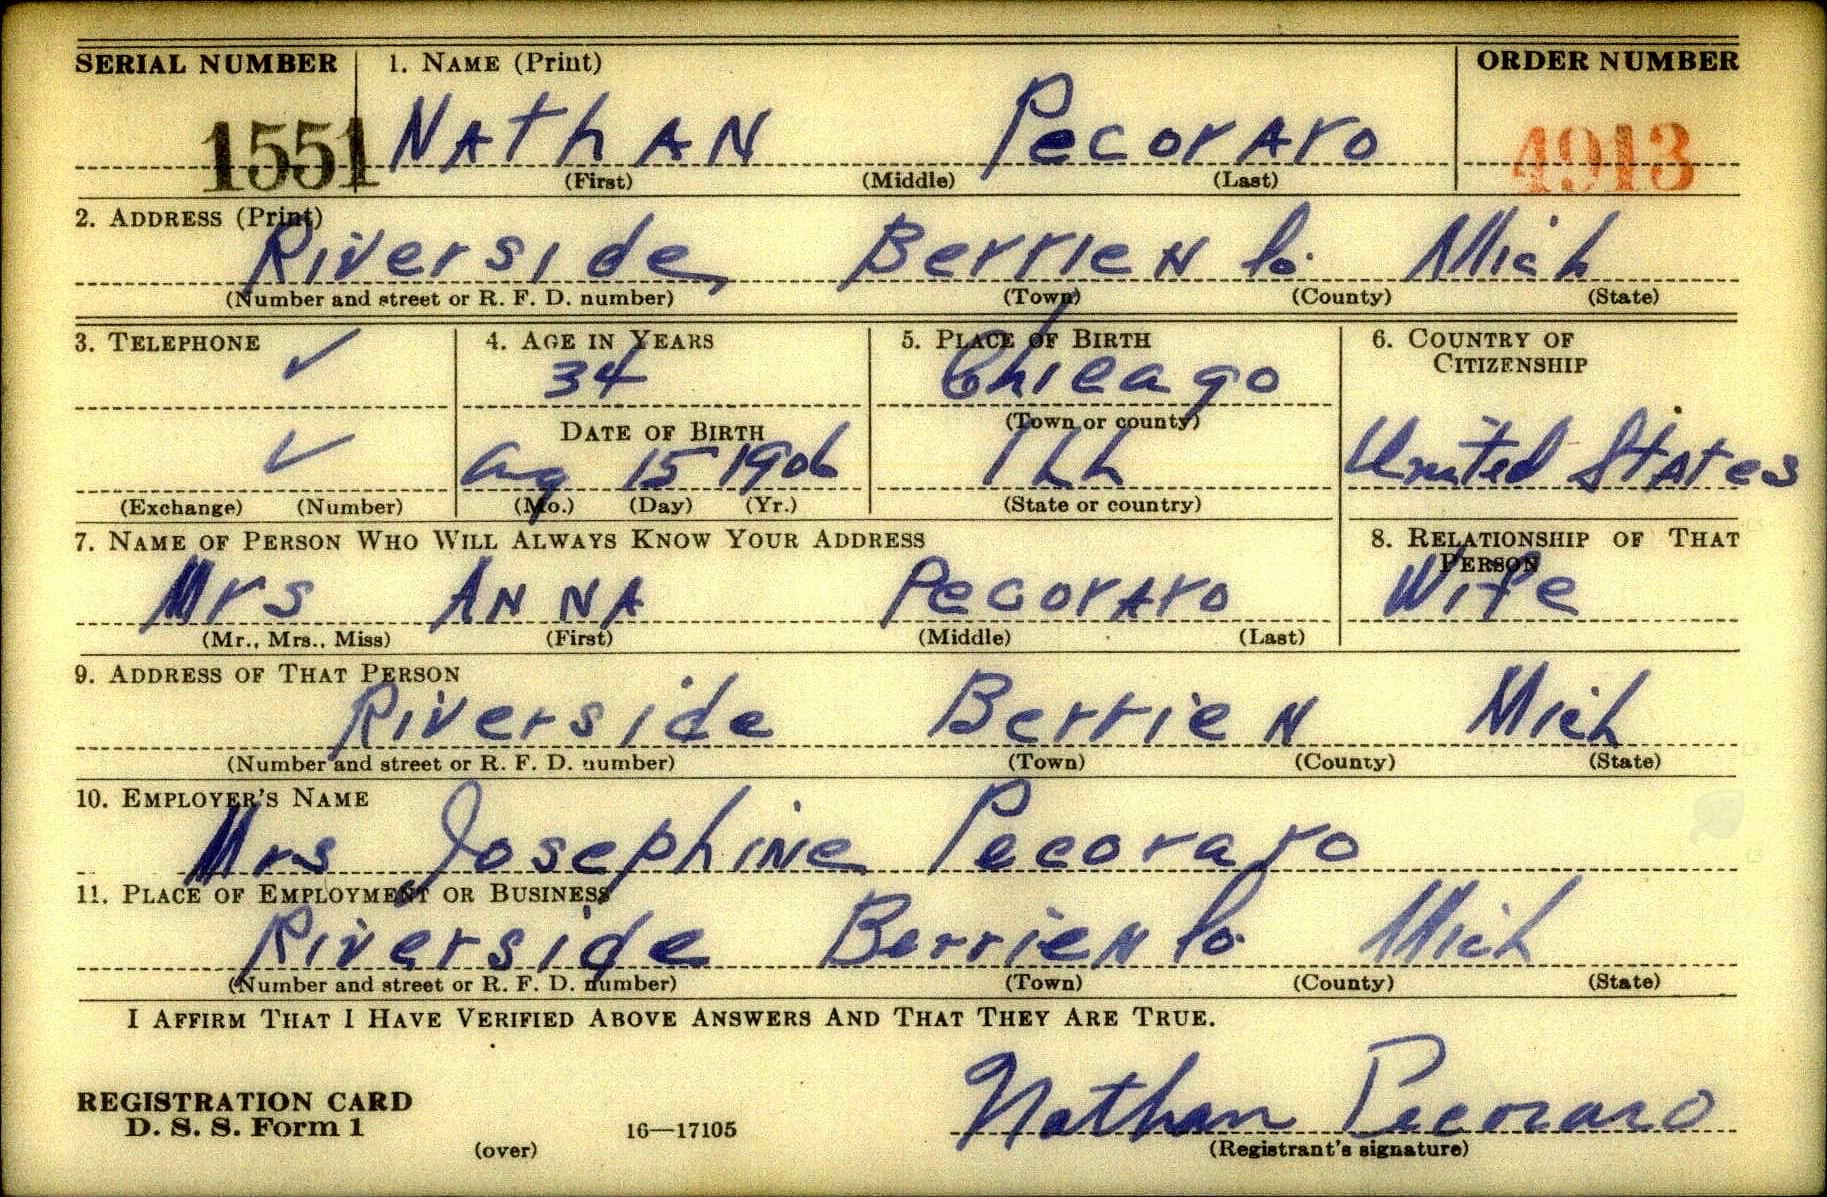 SERIAL NUMBER 1. NAME (Print) ORDER NUMBER
1551 NAthAN PecorAro 4913
(First) (Middle) (Last)
2. ADDRESS (Print)
Riverside, Berrien Co. Mich
(Number and street or R. F. D. number) (Town) (County) (State)
3. TELEPHONE 4. AGE IN YEARS 5. PLACE OF BIRTH 6. COUNTRY OF CITIZENSHIP
34 Chicago
(Town or county)
DATE OF BIRTH
Aug 15 1906 ILL United States
(Exchange) (Number) (Mo.) (Day) (Yr.) (State or country)
7. NAME OF PERSON WHO WILL ALWAYS KNOW YOUR ADDRESS 8. RELATIONSHIP OF THAT PERSON
Mrs ANNA PecorAro Wife
(Mr., Mrs., Miss) (First) (Middle) (Last)
9. ADDRESS OF THAT PERSON
Riverside Berrien Mich
(Number and street or R. F. D. number) (Town) (County) (State)
10. EMPLOYER'S NAME
Mrs Josephine Pecoraro
11. PLACE OF EMPLOYMENT OR BUSINESS
Riverside Berrien Co. Mich
(Number and street or R. F. D. number) (Town) (County) (State)
I AFFIRM THAT I HAVE VERIFIED ABOVE ANSWERS AND THAT THEY ARE TRUE.
REGISTRATION CARD
D. S. S. Form 1 (over) 16—17105
Nathan Pecoraro
(Registrant's signature)